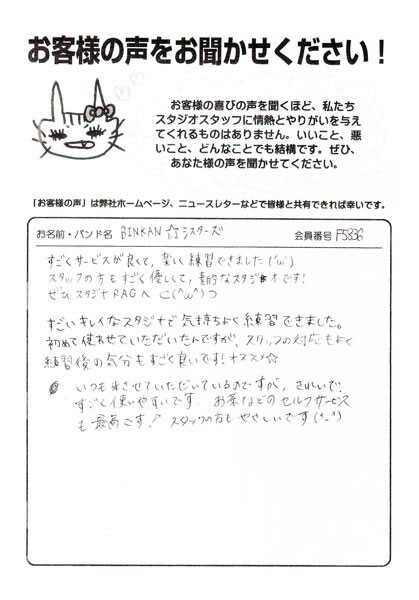 お客様の声をお聞かせください！
お客様の喜びの声を聞くほど、私たち
スタジオスタッフに情熱とやりがいを与え
てくれるものはありません。いいこと、悪
いこと、どんなことでも結構です。ぜひ、
あなた様の声を聞かせてください。
「お客様の声」は弊社ホームページ、ニュースレターなどで皆様と共有できれば幸いです。
お名前・バンド名 BINKAN☆シスターズ
会員番号 F5836
すごくサービスが良くて、楽しく練習できました('ω')
スタッフの方もすごく優しくて、素的なスタジオです!
ぜひスタジオRAGへ⊂(^ω^)つ
すごいキレイなスタジオで気持ちよく練習できました。
初めて使わせていただいたんですが、スタッフの対応もよく
練習後の気分もすごく良いです!オススメ☆
いつも来させていただいているのですが、きれいで、
すごく使いやすいです。お茶などのセルフサービス
も最高です! スタッフの方もやさしいです(^-^)